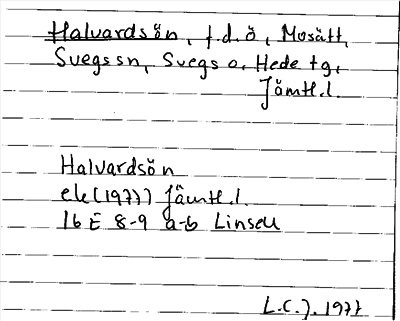 Halvardsön, f.d. ö, Mosätt,
Svegssn, Svegs o. Hede tg,
Jämtl.l.
Halvardsön
ek (1977) Jämtl.l.
16 E 8-9 a-b Linsell
L.C.J. 1977